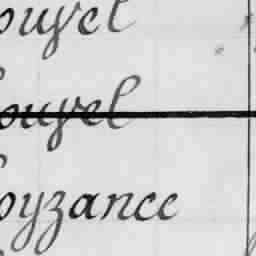 ouyel
ouyel
oyzance